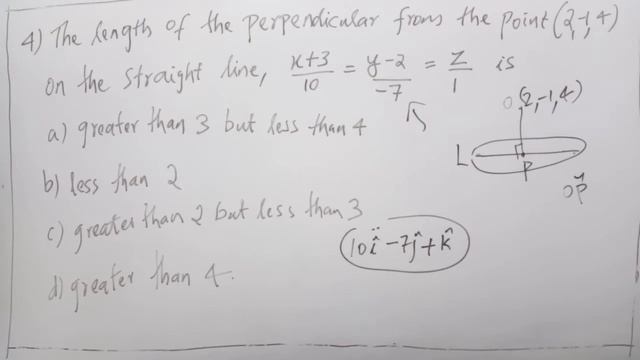 4) The length of the perpendicular from the point (2,-1,4)
on the straight line, x+3/10 = y-2/-7 = z/1 is
a) greater than 3 but less than 4
b) less than 2
c) greater than 2 but less than 3
d) greater than 4.
O (2,-1,4)
L
P
OP
10i - 7j + k